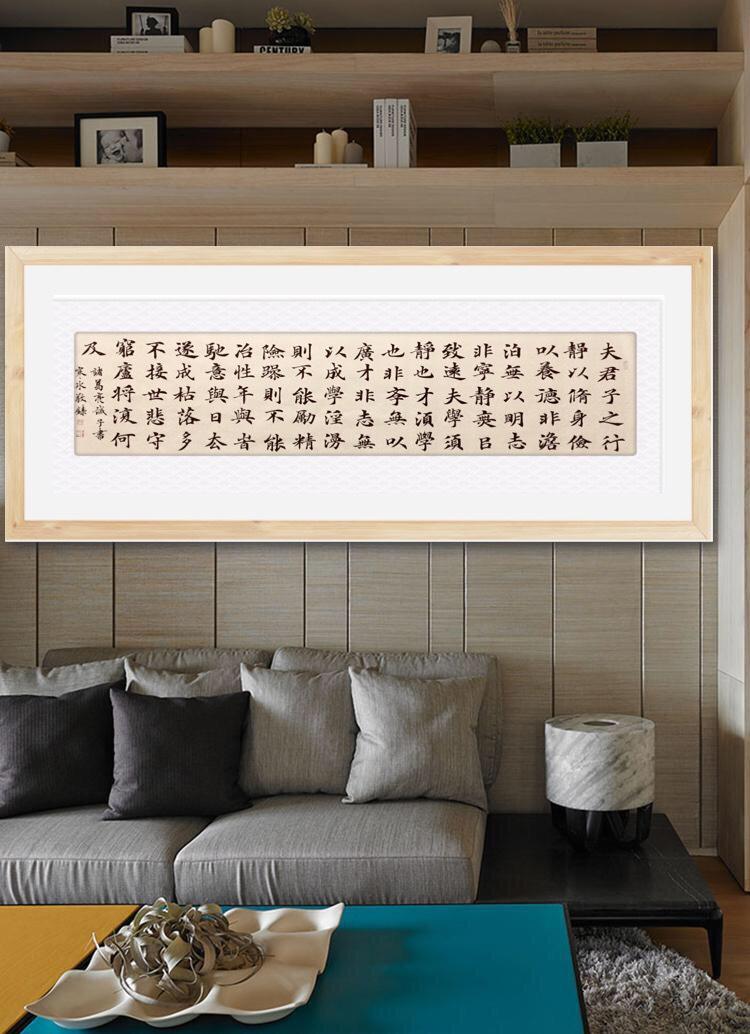 CENTURY
夫君子之行
靜以脩身儉
以養德非澹
泊無以明志
非寧靜無㠯
致遠夫學須
靜也才湏學
也非學無以
廣才非志無
以成學淫漫
則不能勵精
險躁則不能
冶性年與旹
馳意與日去
遂成枯落多
不接世悲守
窮廬將復何
及
諸葛亮誡子書
寒冰敬録